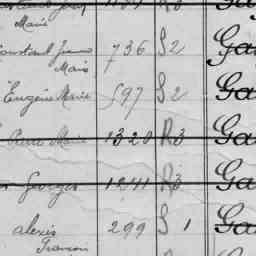 Marie
Constant Jeanne 736 S 2 Ga
Marie
Eugène Marie 597 S 2 Ga
Pierre Marie 1320 R3 Ga
Georges 1241 R3 Ga
Alexis 299 S 1 Ga
François